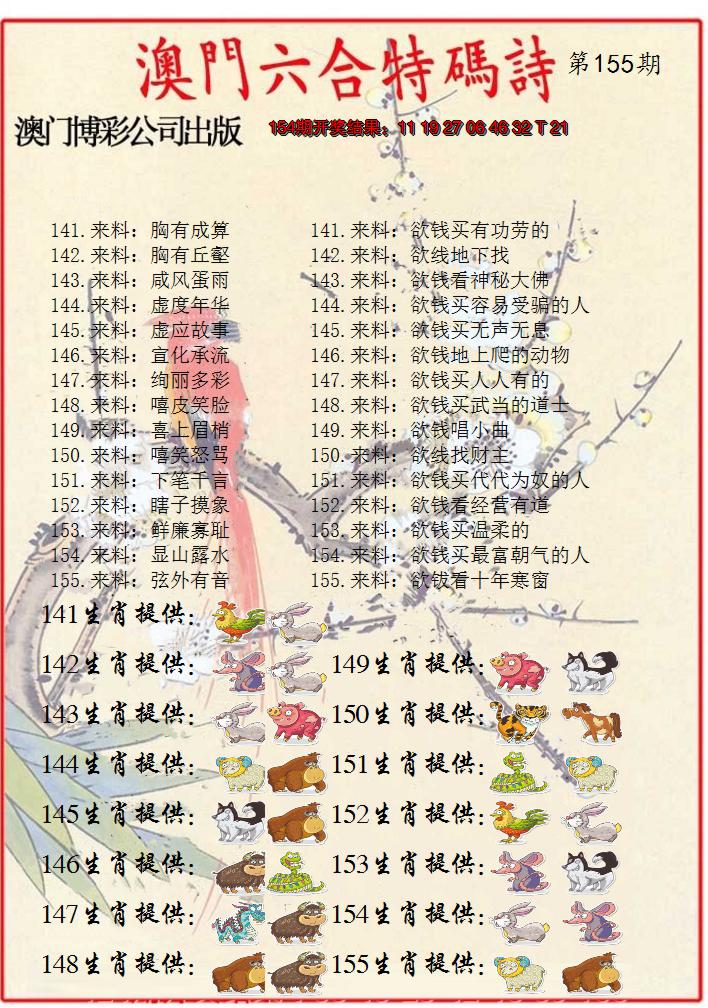 澳門六合特碼詩 第155期
澳门博彩公司出版 154期开奖结果：11 19 27 06 46 32 T 21
141.来料：胸有成算 141.来料：欲钱买有功劳的
142.来料：胸有丘壑 142.来料：欲线地下找
143.来料：咸风蛋雨 143.来料：欲钱看神秘大佛
144.来料：虚度年华 144.来料：欲钱买容易受骗的人
145.来料：虚应故事 145.来料：欲钱买无声无息
146.来料：宣化承流 146.来料：欲钱地上爬的动物
147.来料：绚丽多彩 147.来料：欲钱买人人有的
148.来料：嘻皮笑脸 148.来料：欲钱买武当的道士
149.来料：喜上眉梢 149.来料：欲钱唱小曲
150.来料：嘻笑怒骂 150.来料：欲线找财主
151.来料：下笔千言 151.来料：欲钱买代代为奴的人
152.来料：瞎子摸象 152.来料：欲钱看经营有道
153.来料：鲜廉寡耻 153.来料：欲钱买温柔的
154.来料：显山露水 154.来料：欲钱买最富朝气的人
155.来料：弦外有音 155.来料：欲钹看十年寒窗
141生肖提供：
142生肖提供： 149生肖提供：
143生肖提供： 150生肖提供：
144生肖提供： 151生肖提供：
145生肖提供： 152生肖提供：
146生肖提供： 153生肖提供：
147生肖提供： 154生肖提供：
148生肖提供： 155生肖提供：